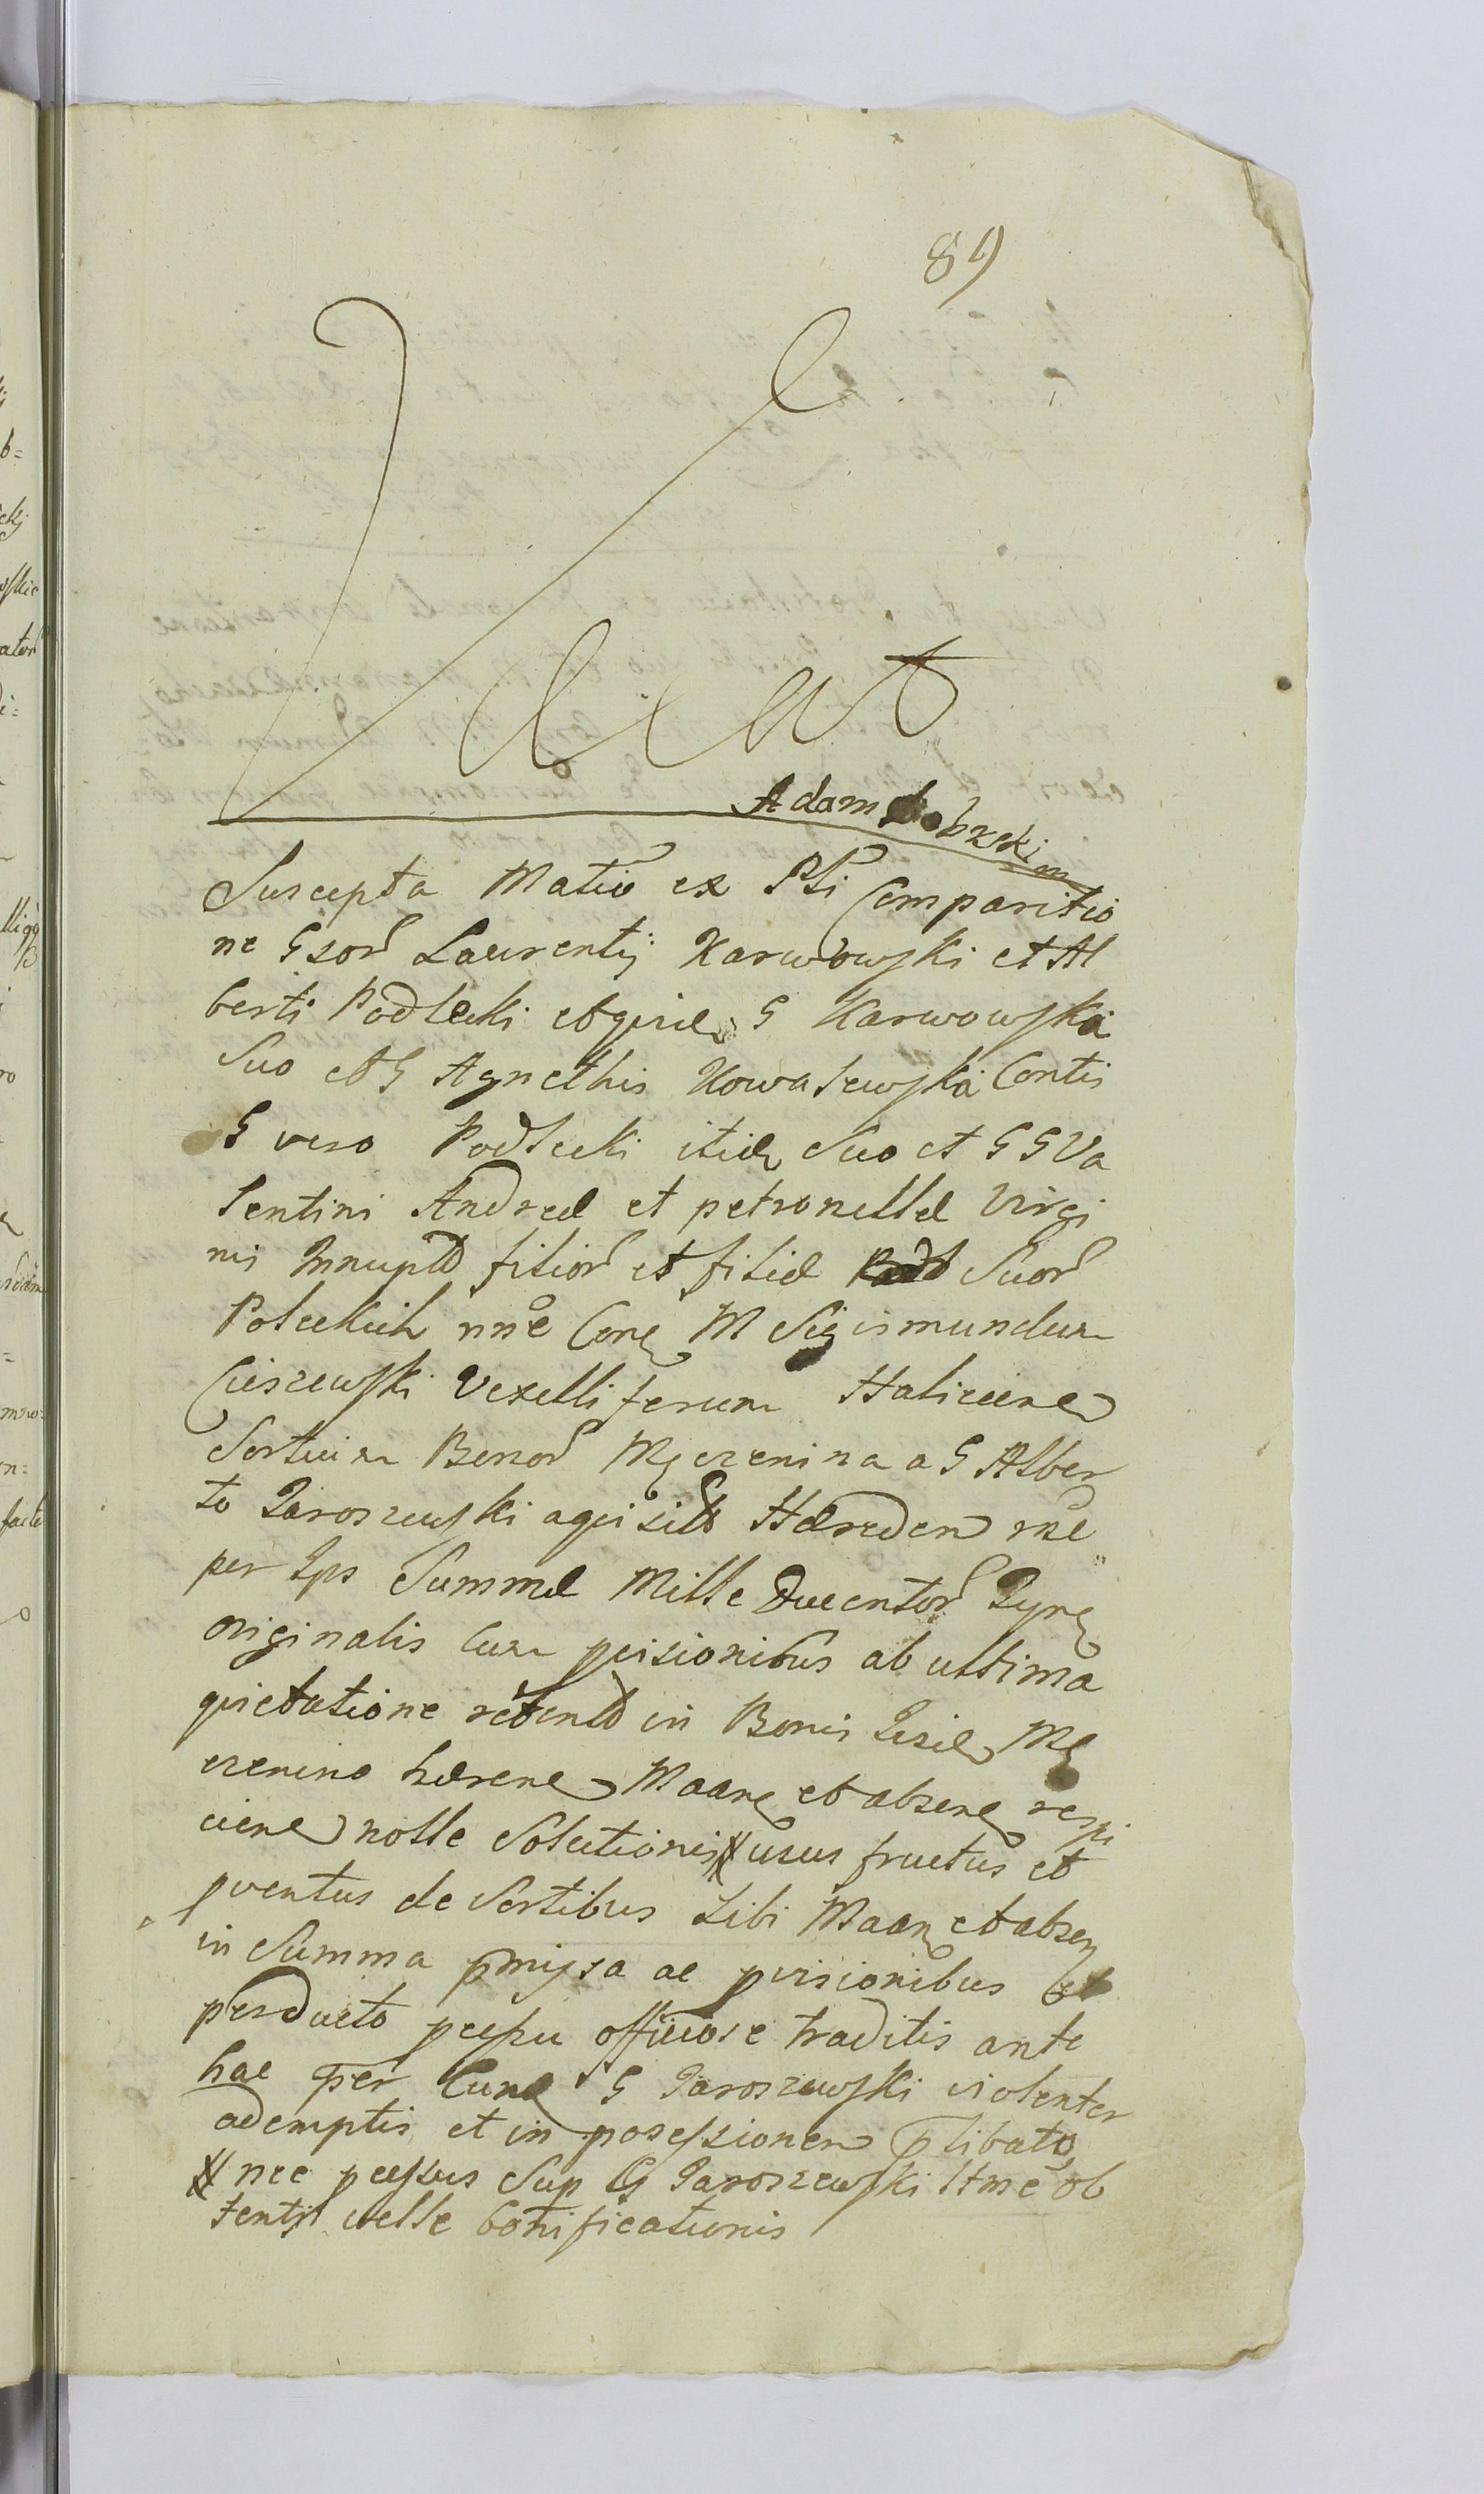 89
Vacat
Adam Dobrski m
Suscepta Mati͠o ex Pli Comparitio
ne Gsor Laurentij Karwowski et Al
berti Podlecki et qide G Karwowski
Suo et G Agnethis Kowalewska Contis
G vero Podlecki itide Suo et GG Va
lentini Andreæ et petronellæ Virgi
nis Innuptæ filior et filiæ Suor
Poleckich nne Cone M Sigismundum
Cieszewski Vexilliferum Halicien
Sortium Bonor Męczenina a G Alber
to Jaroszewski aqisitt Hæredem rne
per Ips Summæ Mille Ducentor Tyne
originalis Cum pvisionibus ab ultima
quietatione retentt in Bonis Iisde Mę
czenino hæren Maane et absene respi
cien nolle Solutionis # usus fructus et
pventus de Sortibus Sibi Maane et absen
in Summa pmissa ac pvisionibus et
perducto pcessu officiose traditis ante
hac per Cund G Jaroszewski violenter
ademptis et in possessionem plibato
# nec pcessus Sup G Jaroszewski ltme ob
tenti velle bonificationis